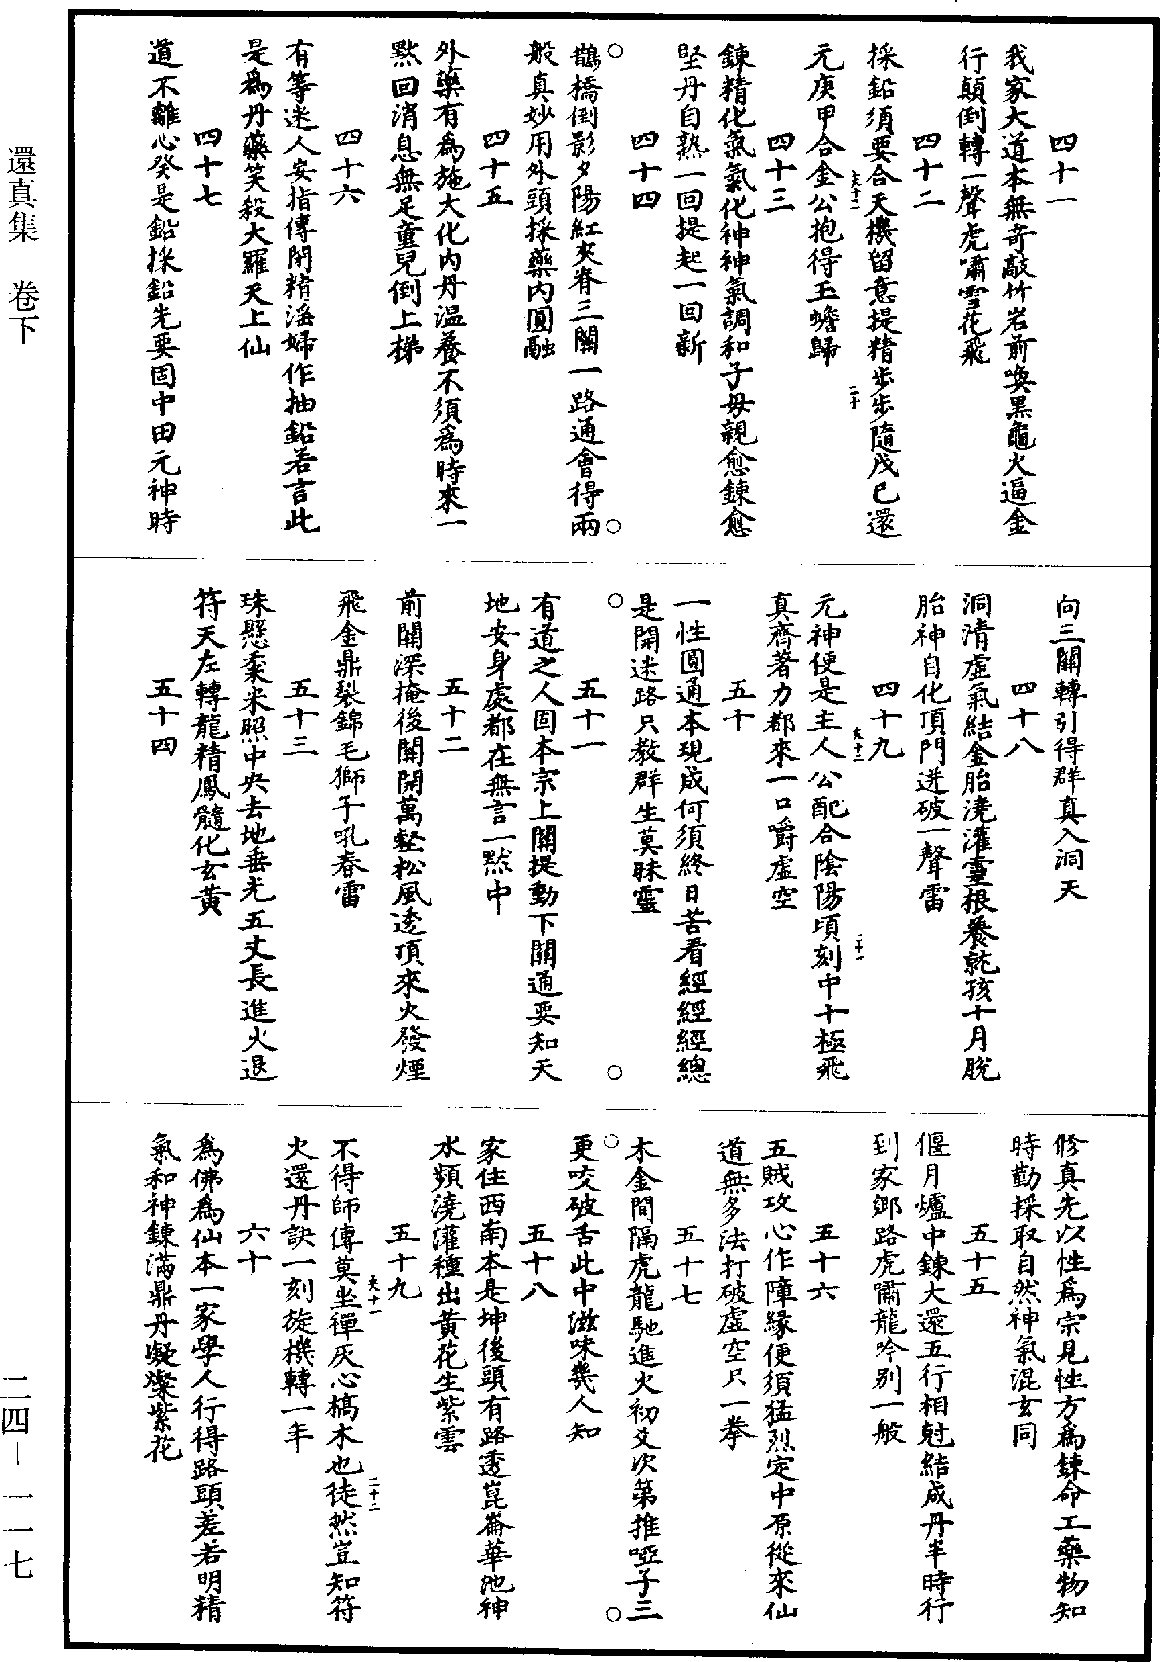 還真集　卷下
四十一
我家大道本無奇敲竹岩前喚黑龜火逼金
行顛倒轉一聲虎嘯雪花飛
四十二
採鉛須要合天機留意提精步步隨戊己還
元庚甲合金公抱得玉蟾歸
四十三
鍊精化氣氣化神神氣調和子母親愈鍊愈
堅丹自熟一回提起一回新
四十四
鵲橋倒影夕陽紅夾脊三關一路通會得兩
般真妙用外頭採藥內圓融
四十五
外藥有為施大化內丹溫養不須為時來一
點回消息無足童兒倒上梯
四十六
有等迷人妄指傳閉精淫婦作抽鉛若言此
是為丹藥笑殺大羅天上仙
四十七
道不離心癸是鉛採鉛先要固中田元神時
向三關轉引得群真入洞天
四十八
洞清虛氣結金胎澆灌靈根養就孩十月脫
胎神自化頂門迸破一聲雷
四十九
元神便是主人公配合陰陽頃刻中十極飛
真齊著力都來一口嚼虛空
五十
一性圓通本現成何須終日苦看經經經總
是開迷路只教群生莫昧靈
五十一
有道之人固本宗上關提動下關通要知天
地安身處都在無言一點中
五十二
前關深掩後關開萬壑松風透頂來火發煙
飛金鼎裂錦毛獅子吼春雷
五十三
珠懸黍米照中央去地垂光五丈長進火退
符天左轉龍精鳳髓化玄黃
五十四
修真先以性為宗見性方為鍊命工藥物知
時勤採取自然神氣混玄同
五十五
偃月爐中鍊大還五行相尅結成丹半時行
到家鄉路虎嘯龍吟別一般
五十六
五賊攻心作障緣便須猛烈定中原從來仙
道無多法打破虛空只一拳
五十七
木金間隔虎龍馳進火初爻次第推啞子三
更咬破舌此中滋味幾人知
五十八
家住西南本是坤後頭有路透崑崙華池神
水頻澆灌種出黃花生紫雲
五十九
不得師傳莫坐禪灰心槁木也徒然豈知符
火還丹訣一刻旋機轉一年
六十
為佛為仙本一家學人行得路頭差若明精
氣和神鍊滿鼎丹凝燦紫花
二四－一一七